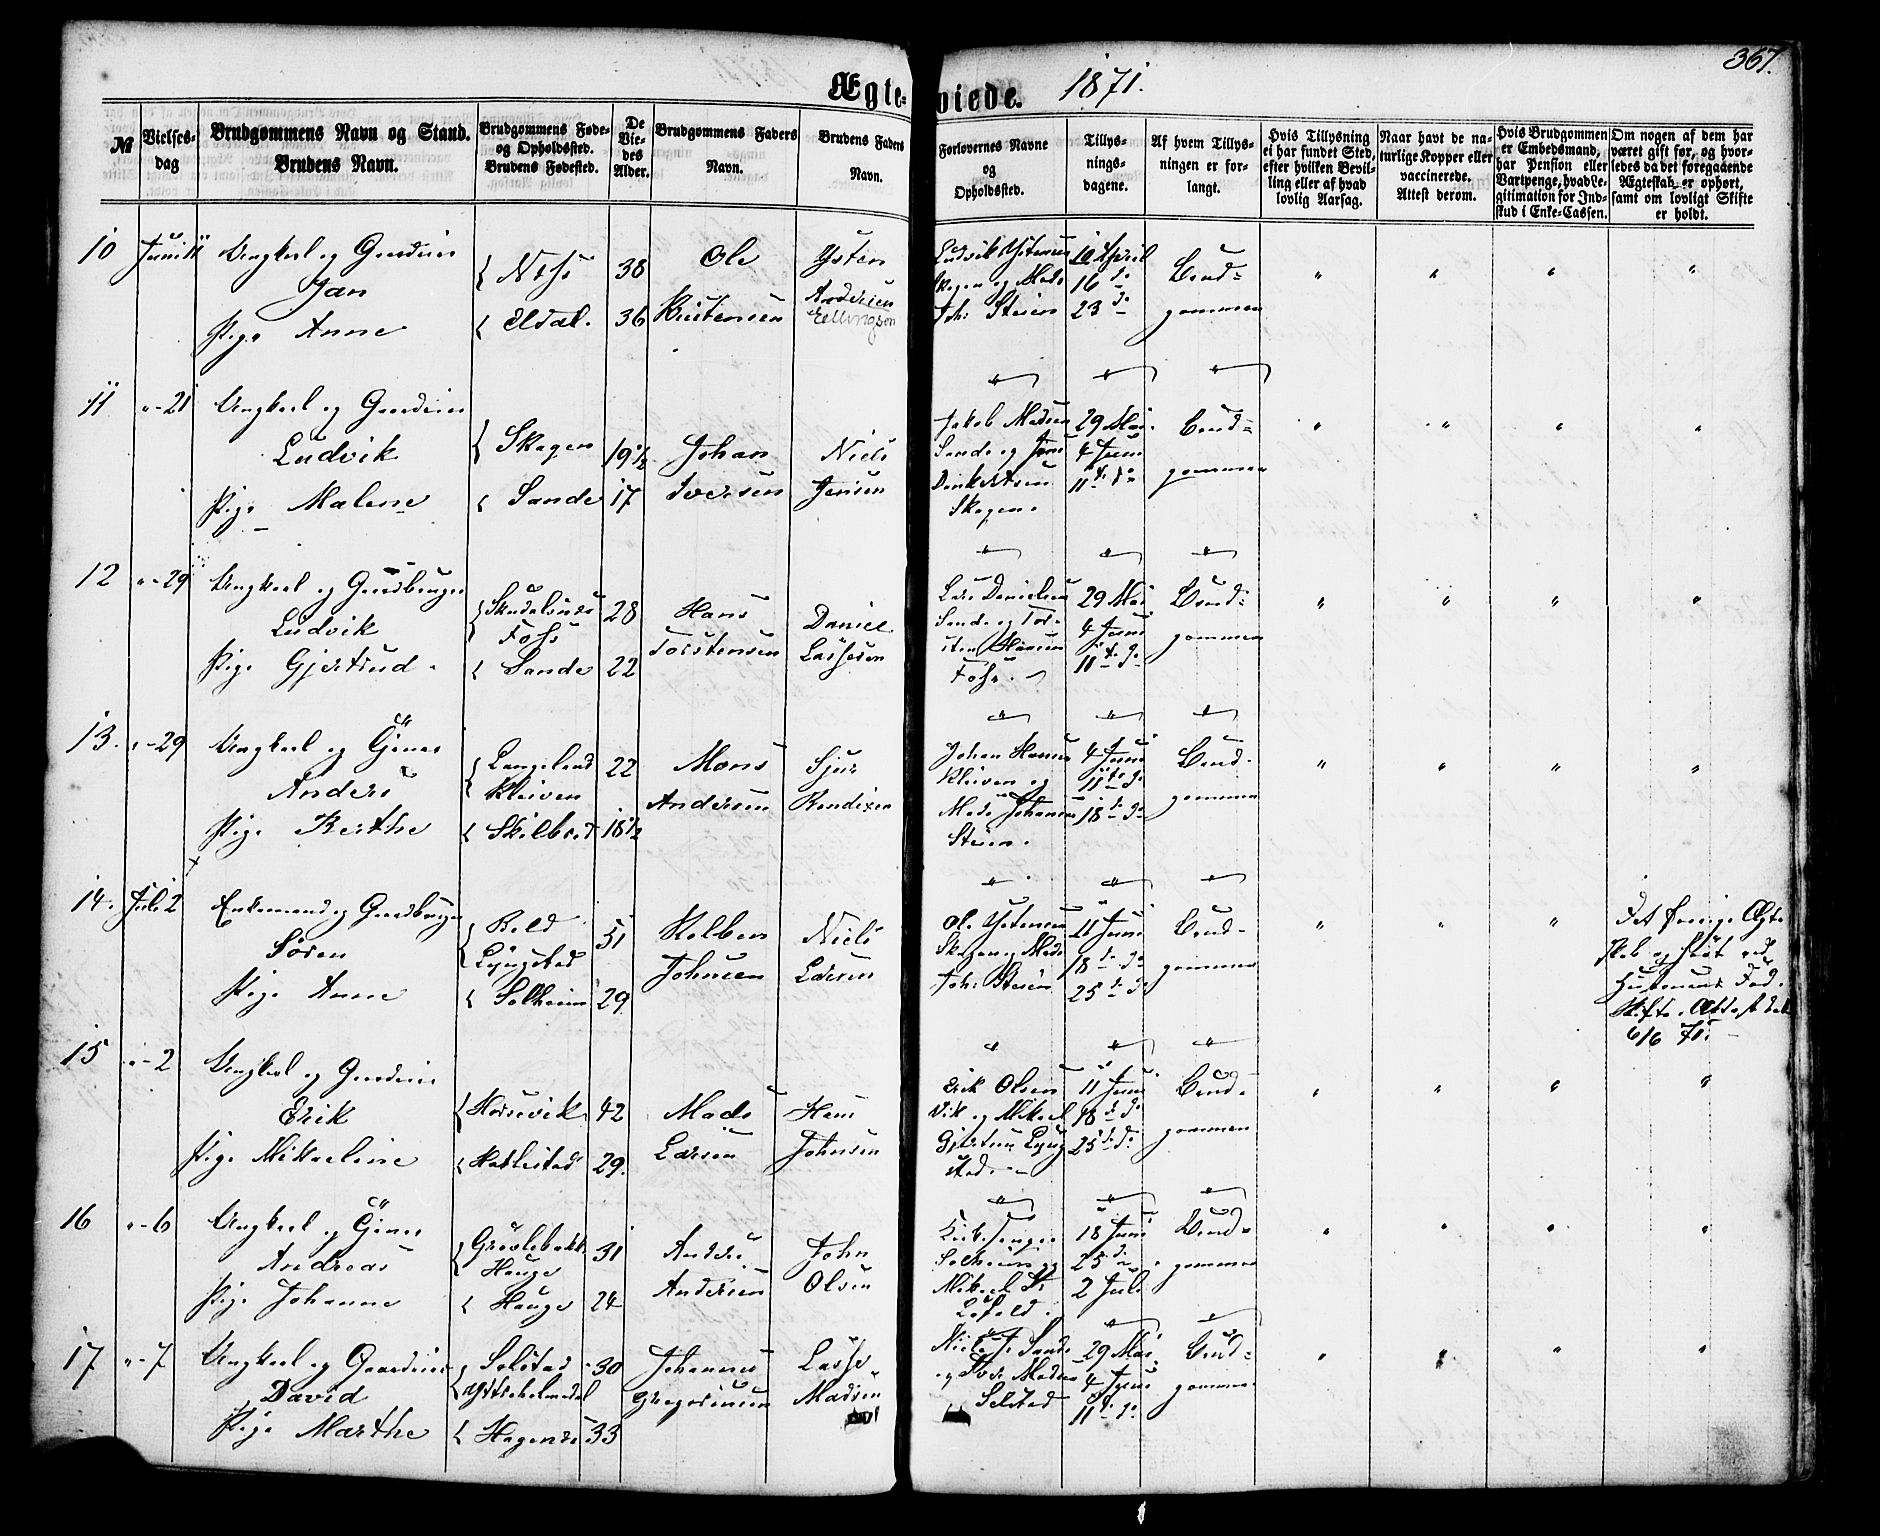 367.
Ægteviede. 1871.
№
Vielses-dag
Brudgommens Navn og Stand.
Brudens Navn.
Brudgommens Føde- og Opholdssted.
Brudens Fødested.
De Viedes Alder.
Brudgommens Faders Navn.
Brudens Faders Navn.
Forlovernes Navne og Opholdssted.
Tillysningsdagene.
Af hvem Tillysningen er forlangt.
Hvis Tillysning ei har fundet Sted, efter hvilken Bevilling eller af hvad lovlig Aarsag.
Naar havt de naturlige Kopper eller vaccinerede. Attest derom.
Hvis Brudgommen er Embedsmand, har Pension eller Vartpenge, hvad Legitimation for Indskud i Enke-Cassen.
Om nogen af dem har været gift før, og hvorledes da det foregaaende Ægteskab er ophørt, samt om lovligt Skifte er holdt.
10 Juni 11 Ungkarl og Gaardm. Jan
Nøss 38 Ole Kristensen
Pige Anne
Eldal. 36 Ysten Andersen Ellingsen
Ludvik Ystensen Skagen og Mads Joh: Steien
10 April 16 d: 23 d:
Brudgommen
11 "-21 Ungkarl og Gaardm. Ludvik
Skagen 19 ½ Johan Iversen
Pige Malene
Sande 17 Niels Jensen
Jakob Madsen Sande og Jens Dankertsen Skagen.
29 Mai 4 Juni 11 t. d:
Brudgommen
12 "-29 Ungkarl og Gaardbruger Ludvik
Foss 28 Hans Torstensen
Pige Gjertrud.
Sande 22 Daniel Lassesen
Lars Danielsen Sande og Torsten Hansen Foss.
29 Mai 4 Juni 11 t. d:
Brudgommen
13. "-29 Ungkarl og Gjener Anders
Langeland Kleiven 22 Mons Andersen
Pige Berthe
Skilbred 18 ½ Sjur Bendixen
Johan Hansen Kleiven og Mads Johansen Steien.
4 Juni 11 te d: 18 d: d:
Brudgommen
14. Juli 2 Enkemand og Gaardbruger Søren
Lyngstad 51 Kolben Johnsen
Pige Anne
Solheim 29 Niels Larsen
Ole Ystensen Skagen og Mads Joh: Steien
11 Juni 18 d: d: 25 d: d:
Brudgommen
Det forrige Ægteskab opløst ved Hustruens Død. Skifte. Attest dat. 6/6 71.
15 "-2 Ungkarl og Gaardm. Erik
Horsevik 42 Mads Larsen
Pige Mikaeline
Hatlestad 29. Hans Johnsen
Erik Olsen Vik og Mikael Gjertsen Lyngstad.
11 Juni 18 d: d: 25 d: d:
Brudgommen
16 "-6 Ungkarl og Gjener Andreas
Grovlebakk Hauge 31 Anders Andersen
Pige Johanne
Hauge 24 John Olsen
Solheim og Mikael
18 Juni 25 d: 2 Juli
Brudgommen
17 "-7 Ungkarl og Gaardm. David
Solstad Ytreholmedal 30 Johannes Gregoriusen
Pige Marthe
33 Lasse Madsen
Niels J. Sande og Madsen Solstad
29 Mai 4 Juni 11 t. d:
Brudgommen